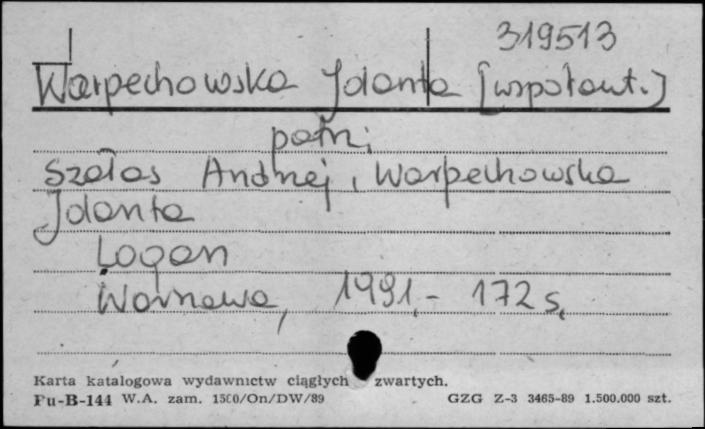 319513
Warpechowska Jolanta [współaut.]
patrz:
Szałas Andrzej, Warpechowska
Jolanta
Logan
Warszawa, 1991,- 172 s,
Karta katalogowa wydawnictw ciągłych zwartych.
Pu-B-144 W.A. zam. 1500/On/DW/89 GZG Z-3 3465-89 1.500.000 szt.